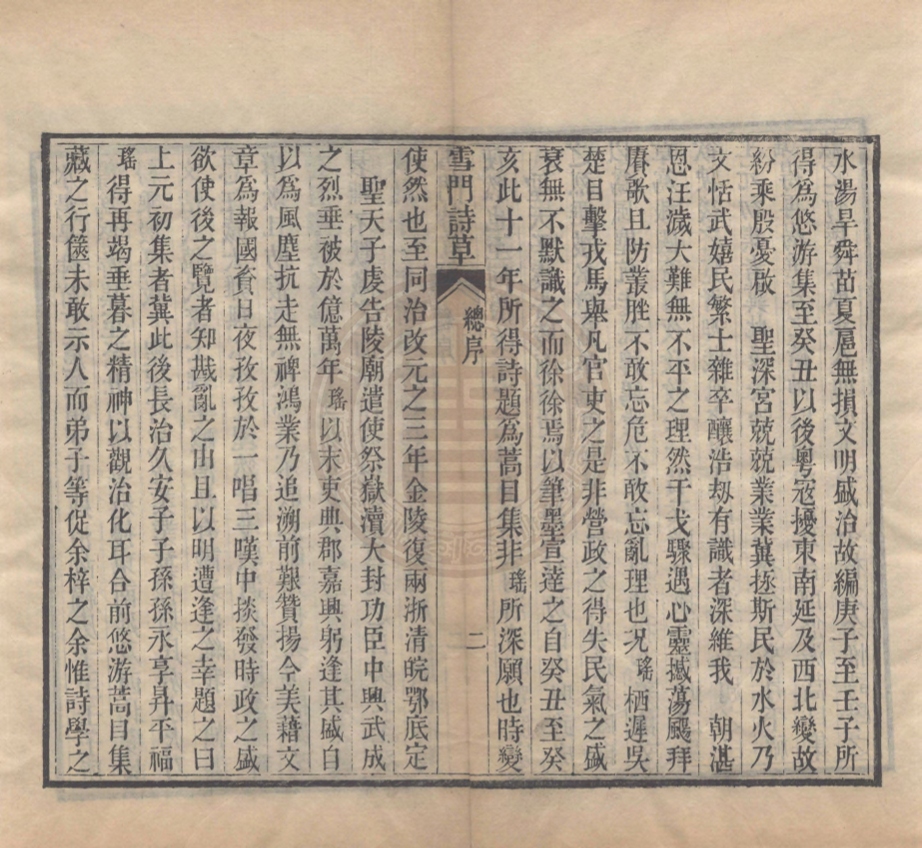 水湯旱舜苗夏扈無損文明盛治故編庚子至壬子所
得為悠游集至癸丑以後粵冦擾東南延及西北變故
紛乘殷憂啟　聖深宮兢兢業業冀拯斯民於水火乃
文恬武嬉民繁士雜卒釀浩劫有識者深維我　朝湛
恩汪濊大難無不平之理然干戈驟遇心靈撼蕩颺拜
賡歌且防叢脞不敢忘危不敢忘亂理也况瑤栖遲吳
楚目擊戎馬舉凡官吏之是非營政之得失民氣之盛
衰無不默識之而徐徐焉以筆墨宣達之自癸丑至癸
亥此十一年所得詩題為蒿目集非瑤所深願也時變
雪門詩草　總序　二
使然也至同治改元之三年金陵復兩浙清皖鄂底定
聖天子虔告陵廟遣使祭嶽瀆大封功臣中興武成
之烈垂被於億萬年瑤以末吏典郡嘉興躬逢其盛自
以為風塵抗走無裨鴻業乃追溯前艱贊揚今美藉文
章為報國資日夜孜孜於一唱三嘆中掞發時政之盛
欲使後之覽者知戡亂之由且以明遭逢之幸題之曰
上元初集者冀此後長治久安子子孫孫永享昇平福
瑤得再竭垂暮之精神以觀治化耳合前悠游蒿目集
藏之行篋未敢示人而弟子等促余梓之余惟詩學之